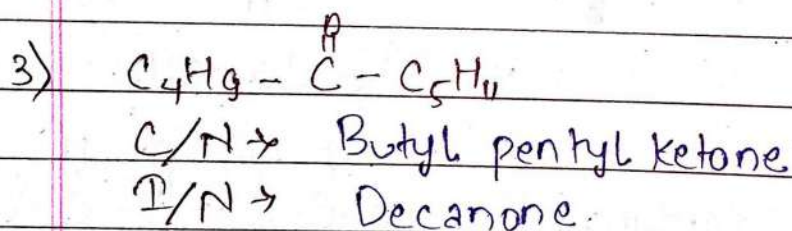 O
3) C₄H₉ - C - C₅H₁₁
C/N → Butyl pentyl ketone
I/N → Decanone.